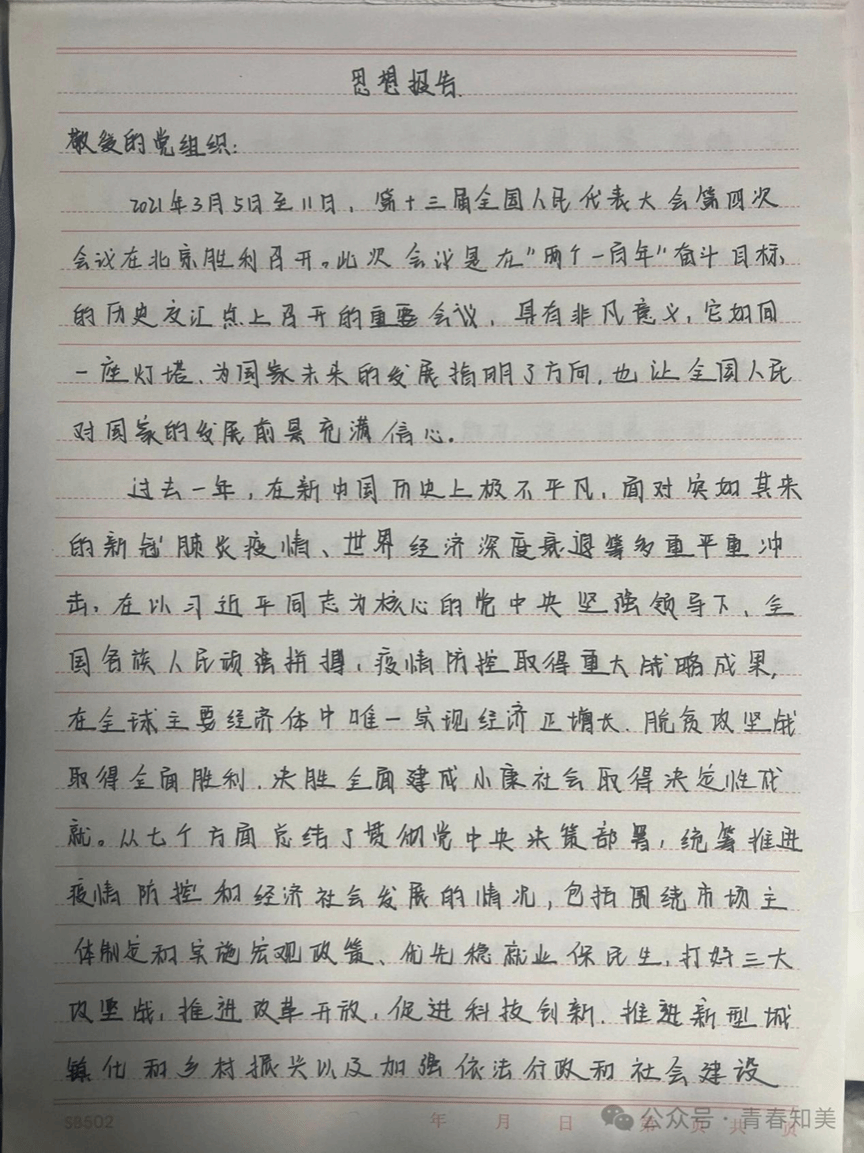 思想报告
敬爱的党组织：
2021年3月5日至11日，第十三届全国人民代表大会第四次
会议在北京胜利召开。此次会议是在"两个一百年"奋斗目标
的历史交汇点上召开的重要会议，具有非凡意义，它如同
一座灯塔、为国家未来的发展指明了方向，也让全国人民
对国家的发展前景充满信心。
过去一年，在新中国历史上极不平凡，面对突如其来
的新冠肺炎疫情、世界经济深度衰退等多重严重冲
击，在以习近平同志为核心的党中央坚强领导下、全
国各族人民顽强拼搏，疫情防控取得重大战略成果，
在全球主要经济体中唯一实现经济正增长、脱贫攻坚战
取得全面胜利、决胜全面建成小康社会取得决定性成
就。从七个方面总结了贯彻党中央决策部署，统筹推进
疫情防控和经济社会发展的情况，包括围绕市场主
体制定和实施宏观政策、优先稳就业保民生，打好三大
攻坚战，推进改革开放，促进科技创新、推进新型城
镇化和乡村振兴以及加强依法行政和社会建设
58502 年 月 日 第 页 共 页
公众号·青春知美